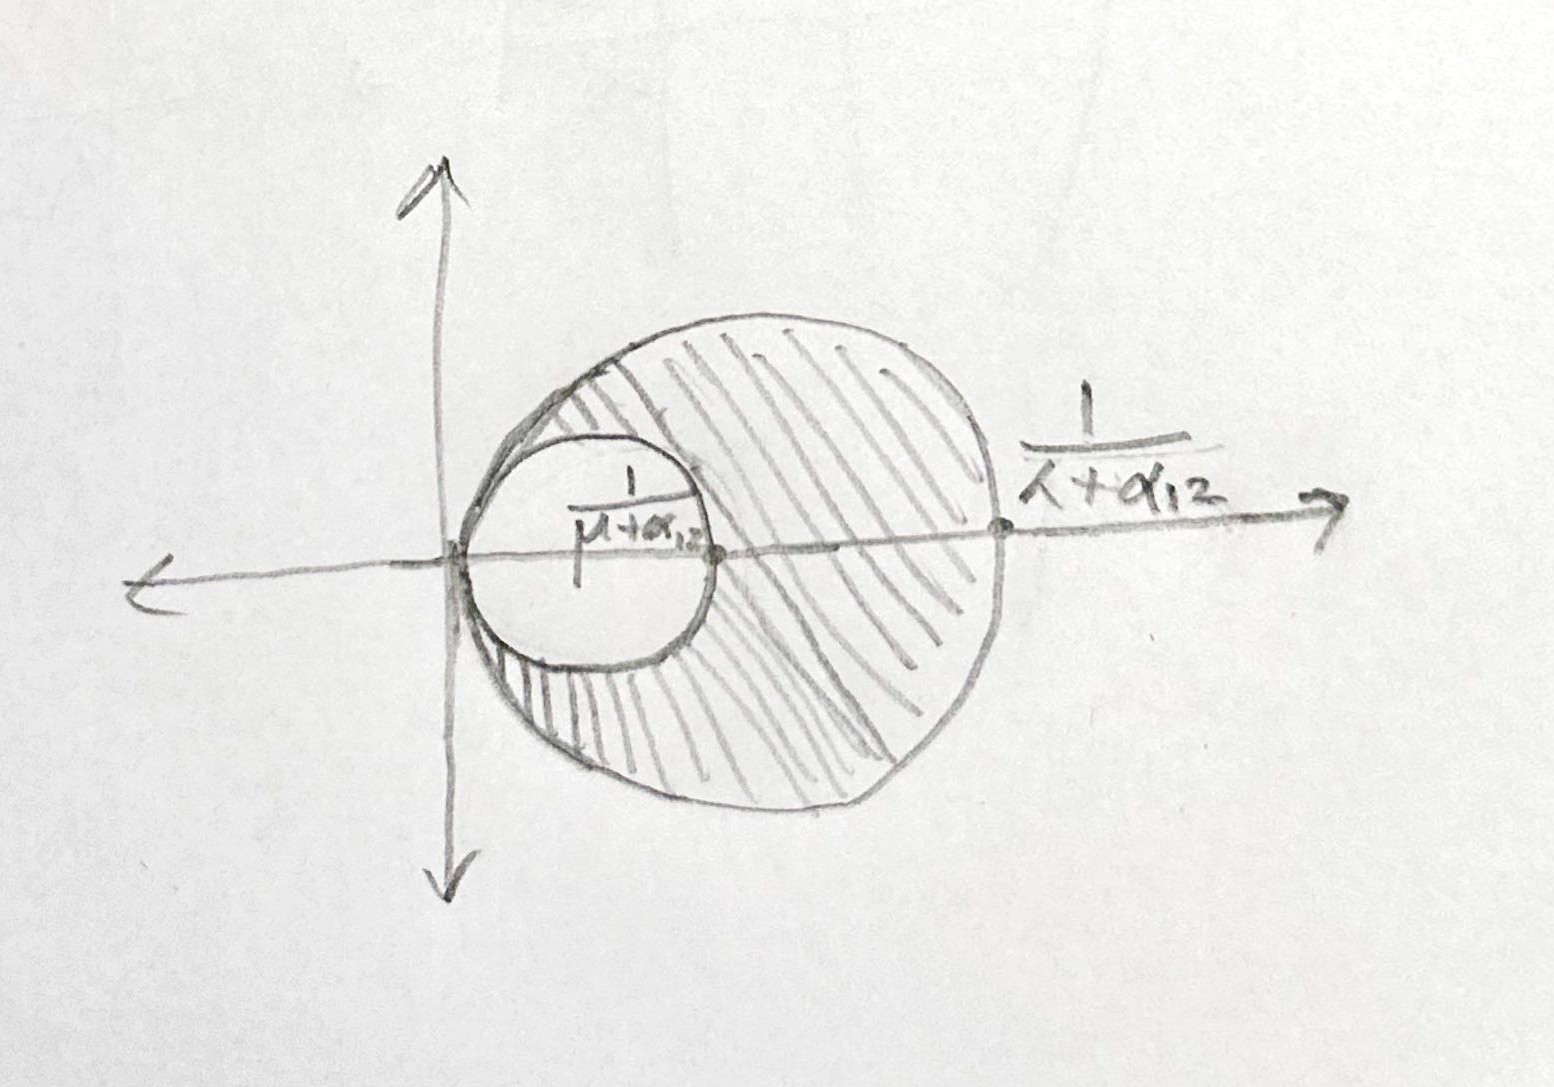 1
μ+α₁₂
1
λ+α₁₂